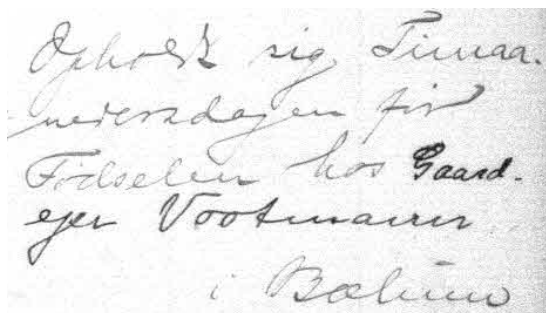 Opholdt sig Timaa-
nedersdagen før
Fødselen hos Gaard-
ejer Vootmann
i Bælum